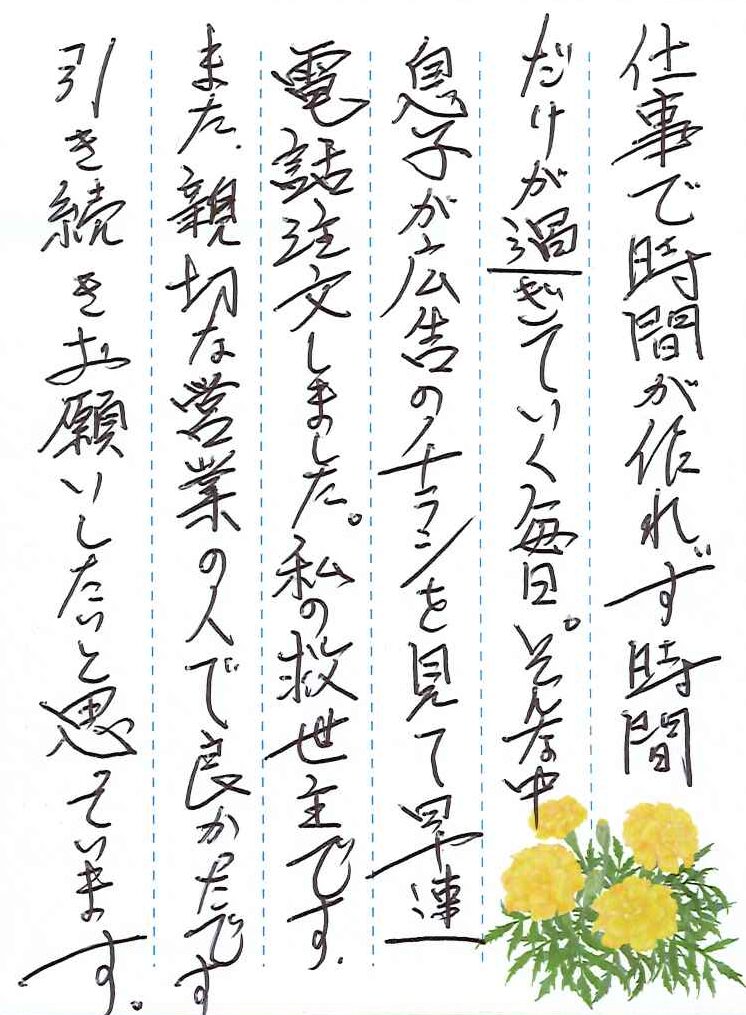 仕事で時間が作れず時間
だけが過ぎていく毎日。そんな中
息子が広告のチラシを見て早速
電話注文しました。私の救世主です。
また、親切な営業の人で良かったです
引き続きお願いしたいと思っています。